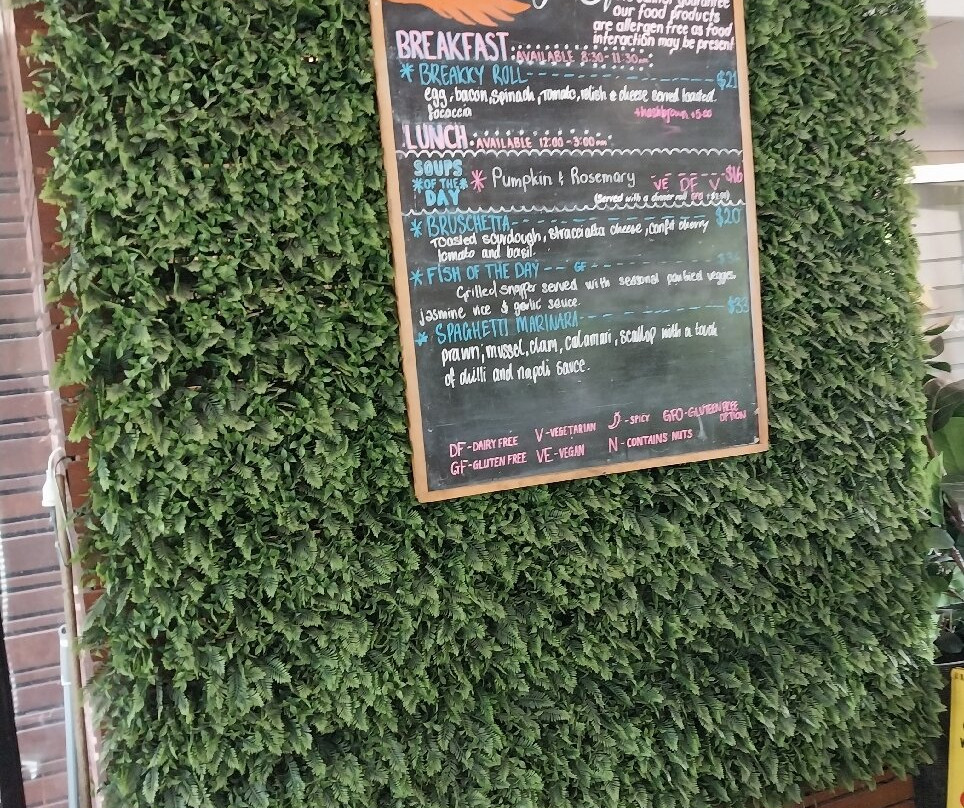 our food products
are allergen free as food
interaction may be present
BREAKFAST. AVAILABLE 8:30-11:30am
* BREAKKY ROLL $21
egg, bacon, spinach, tomato, relish & cheese served toasted
focaccia +hashbrown +5.00
LUNCH. AVAILABLE 12:00-3:00pm
SOUPS
*OF THE*
DAY
* Pumpkin & Rosemary VE DF V $16
(served with a dinner roll
* BRUSCHETTA $20
Toasted sourdough, stracciatta cheese, confit cherry
tomato and basil.
* FISH OF THE DAY GF
Grilled snapper served with seasonal veggies
jasmine rice & garlic sauce.
* SPAGHETTI MARINARA $33
prawn, mussel, clam, calamari, scallop with a touch
of chilli and napoli sauce.
DF-DAIRY FREE V-VEGETARIAN -SPICY GFO-GLUTEEN FREE OPTION
GF-GLUTEN FREE VE-VEGAN N-CONTAINS NUTS